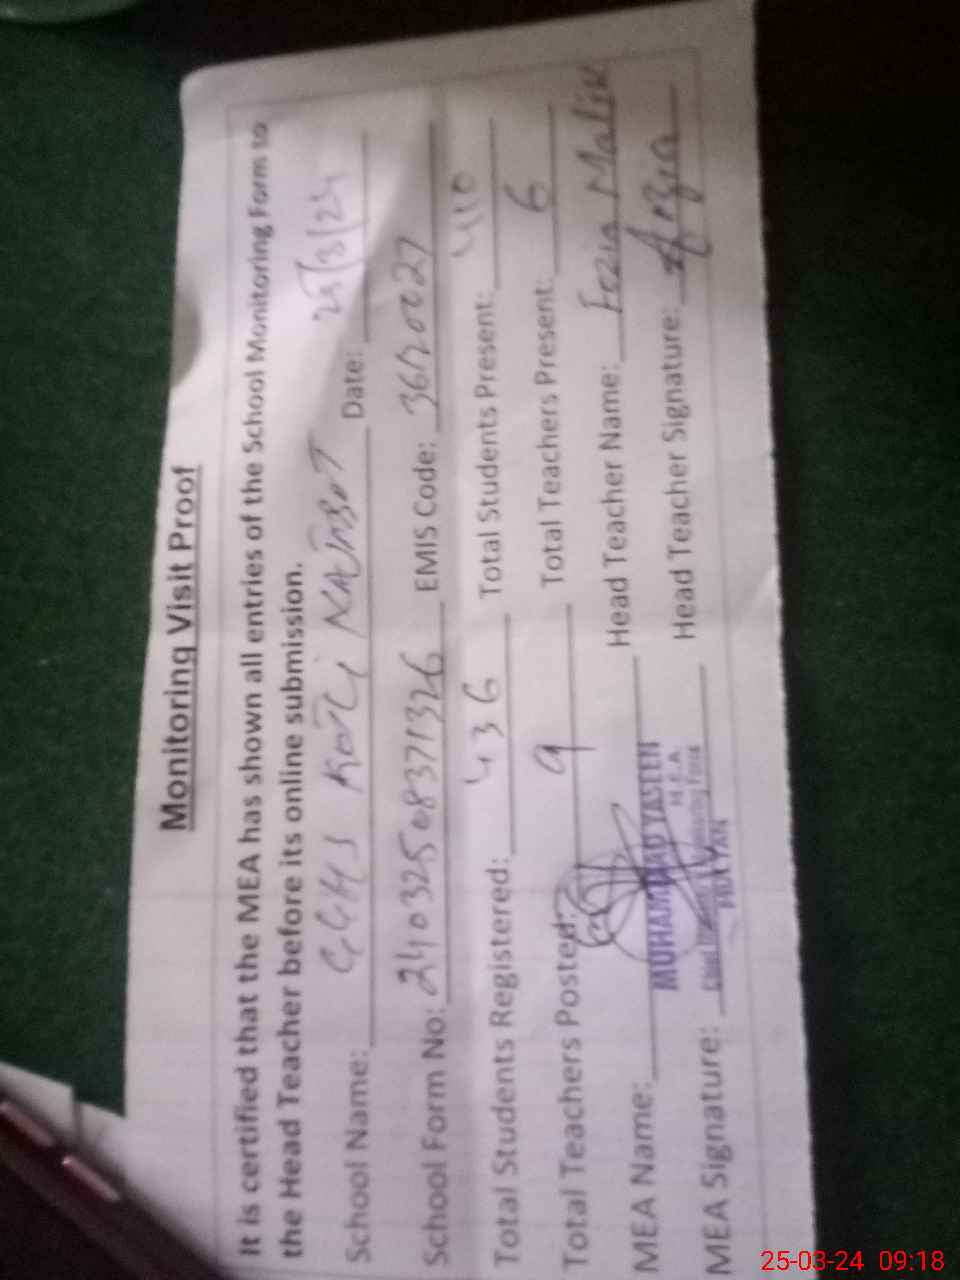 Monitoring Visit Proof
It is certified that the MEA has shown all entries of the School Monitoring Form to
the Head Teacher before its online submission.
School Name: GGHS KOTLI NAJABAT Date: 25/3/24
School Form No: 24032508371326 EMIS Code: 36120027
Total Students Registered: 436 Total Students Present: 410
Total Teachers Posted: 9 Total Teachers Present: 6
MEA Name: MUHAMMAD YASEEN Head Teacher Name: Fozia Malik
M.E.A.
MEA Signature: Head Teacher Signature:
25-03-24 09:18